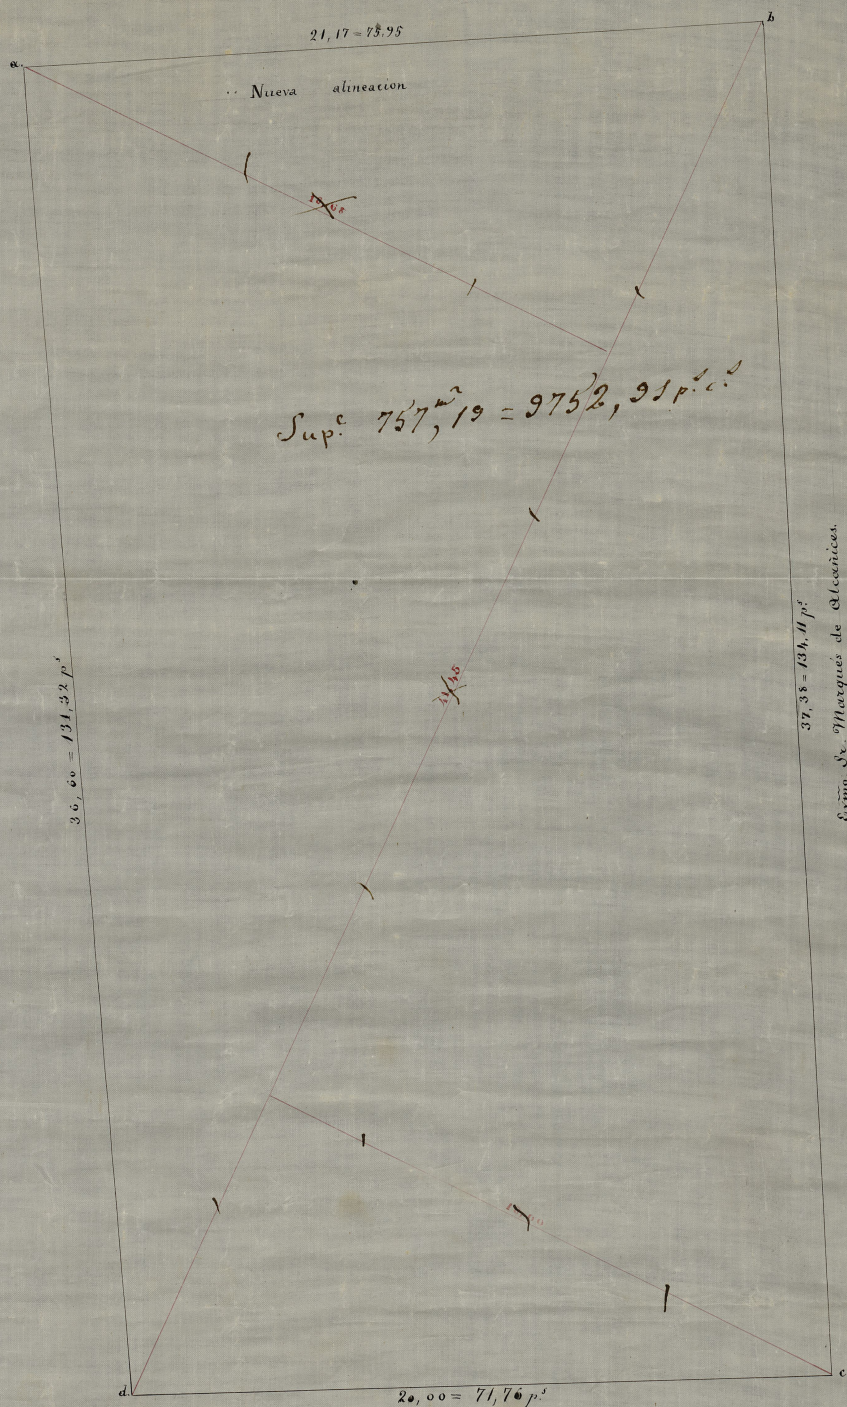 21,17 = 75,95
b
a.
Nueva alineacion
Sup.e 757,m2 19 = 9752, 91 p.s c.s
36, 60 = 131,32 p.s
41,45
37, 38 = 134,11 p.s
Exmo Sr. Marqués de Alcañices.
d.
20,00 = 71,76 p.s
c